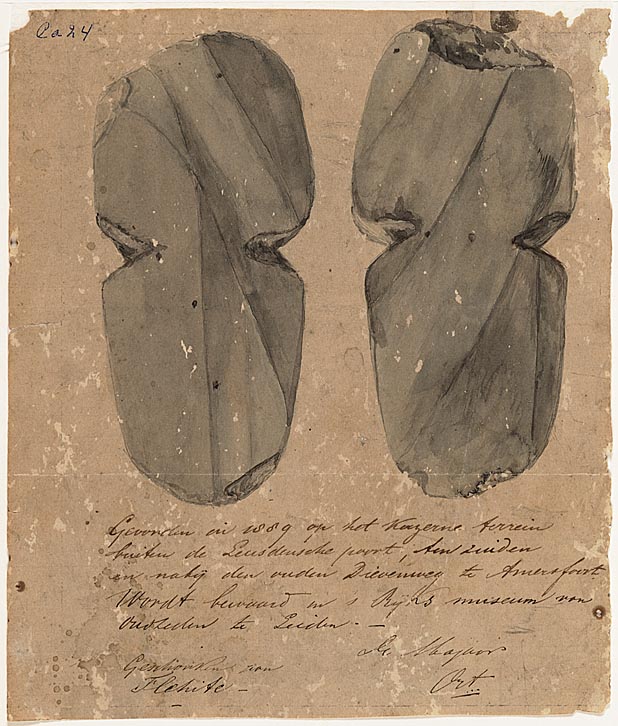 Ca 24
Gevonden in 1889 op het kazerne terrein
buiten de Leusdensche poort, ten zuiden
en nabij den ouden Dievenweg te Amersfoort
Wordt bewaard in 's Rijks museum van
Oudheden te Leiden. —
De Majoor
Geschonken aan
Flehite —